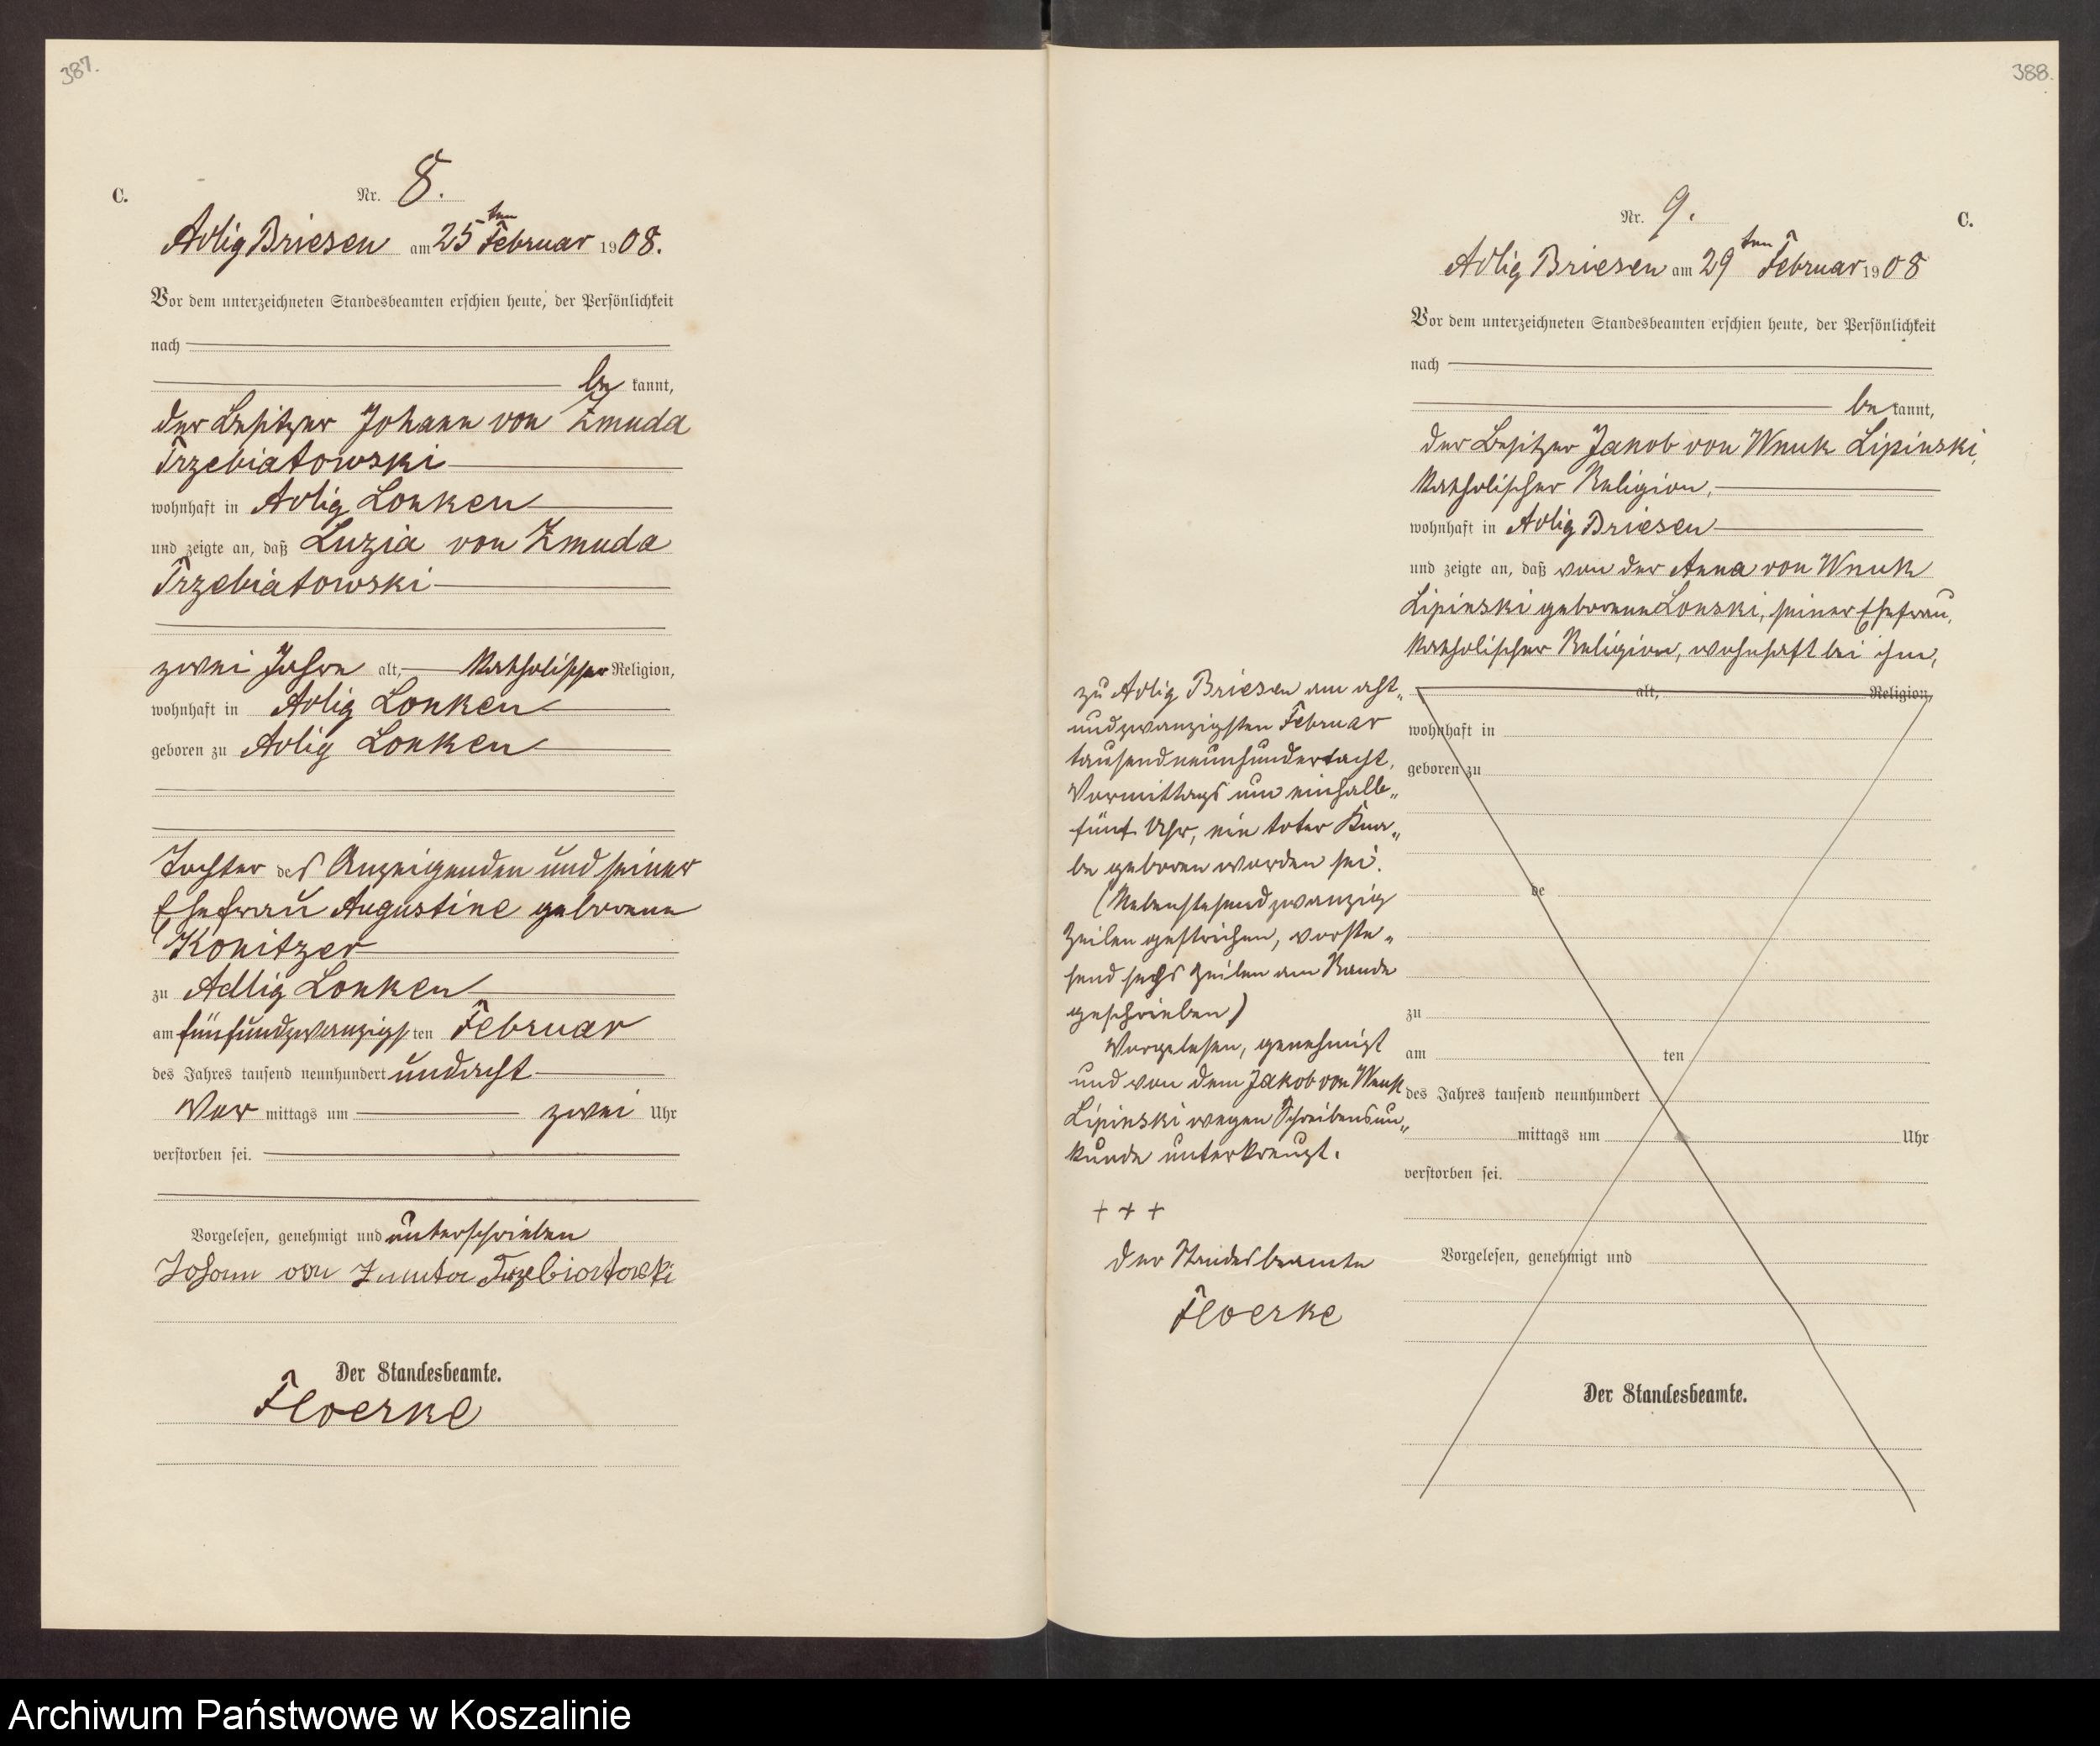 387.
C.
Nr. 8.
Adlig Briesen am 25ten Februar 1908.
Vor dem unterzeichneten Standesbeamten erschien heute, der Persönlichkeit
nach
be kannt,
der Besitzer Johann von Zmuda
Trzebiatowski
wohnhaft in Adlig Lonken
und zeigte an, daß Luzia von Zmuda
Trzebiatowski
zwei Jahre alt, katholischer Religion,
wohnhaft in Adlig Lonken
geboren zu Adlig Lonken
Tochter des Anzeigenden und seiner
Ehefrau Augustine geborene
Konitzer
zu Adlig Lonken
am fünfundzwanzigsten Februar
des Jahres tausend neunhundert undacht
Vor mittags um zwei Uhr
verstorben sei.
Vorgelesen, genehmigt und unterschrieben
Johann von Zmuda Trzebiatowski
Der Standesbeamte.
Floerke
388.
Nr. 9.
C.
Adlig Briesen am 29ten Februar 1908
Vor dem unterzeichneten Standesbeamten erschien heute, der Persönlichkeit
nach
be kannt,
der Besitzer Jakob von Wnuk Lipinski,
katholischer Religion,
wohnhaft in Adlig Briesen
und zeigte an, daß von der Anna von Wnuk
Lipinski geborene Lonski, seiner Ehefrau,
katholischer Religion, wohnhaft bei ihm,
zu Adlig Briesen am acht„
undzwanzigsten Februar
tausendneunhundertacht,
Vormittags um einhalb„
fünf Uhr, ein toter Kna„
be geboren worden sei.
(Nebenstehend zwanzig
Zeilen gestrichen, vorste„
hend sechs Zeilen am Rande
geschrieben)
Vorgelesen, genehmigt
und von dem Jakob von Wnuk
Lipinski wegen Schreibensun„
kunde unterkreuzt.
+ + +
Der Standesbeamte
Floerke
alt, Religion,
wohnhaft in
geboren zu
de
zu
am ten
des Jahres tausend neunhundert
mittags um Uhr
verstorben sei.
Vorgelesen, genehmigt und
Der Standesbeamte.
Archiwum Państwowe w Koszalinie